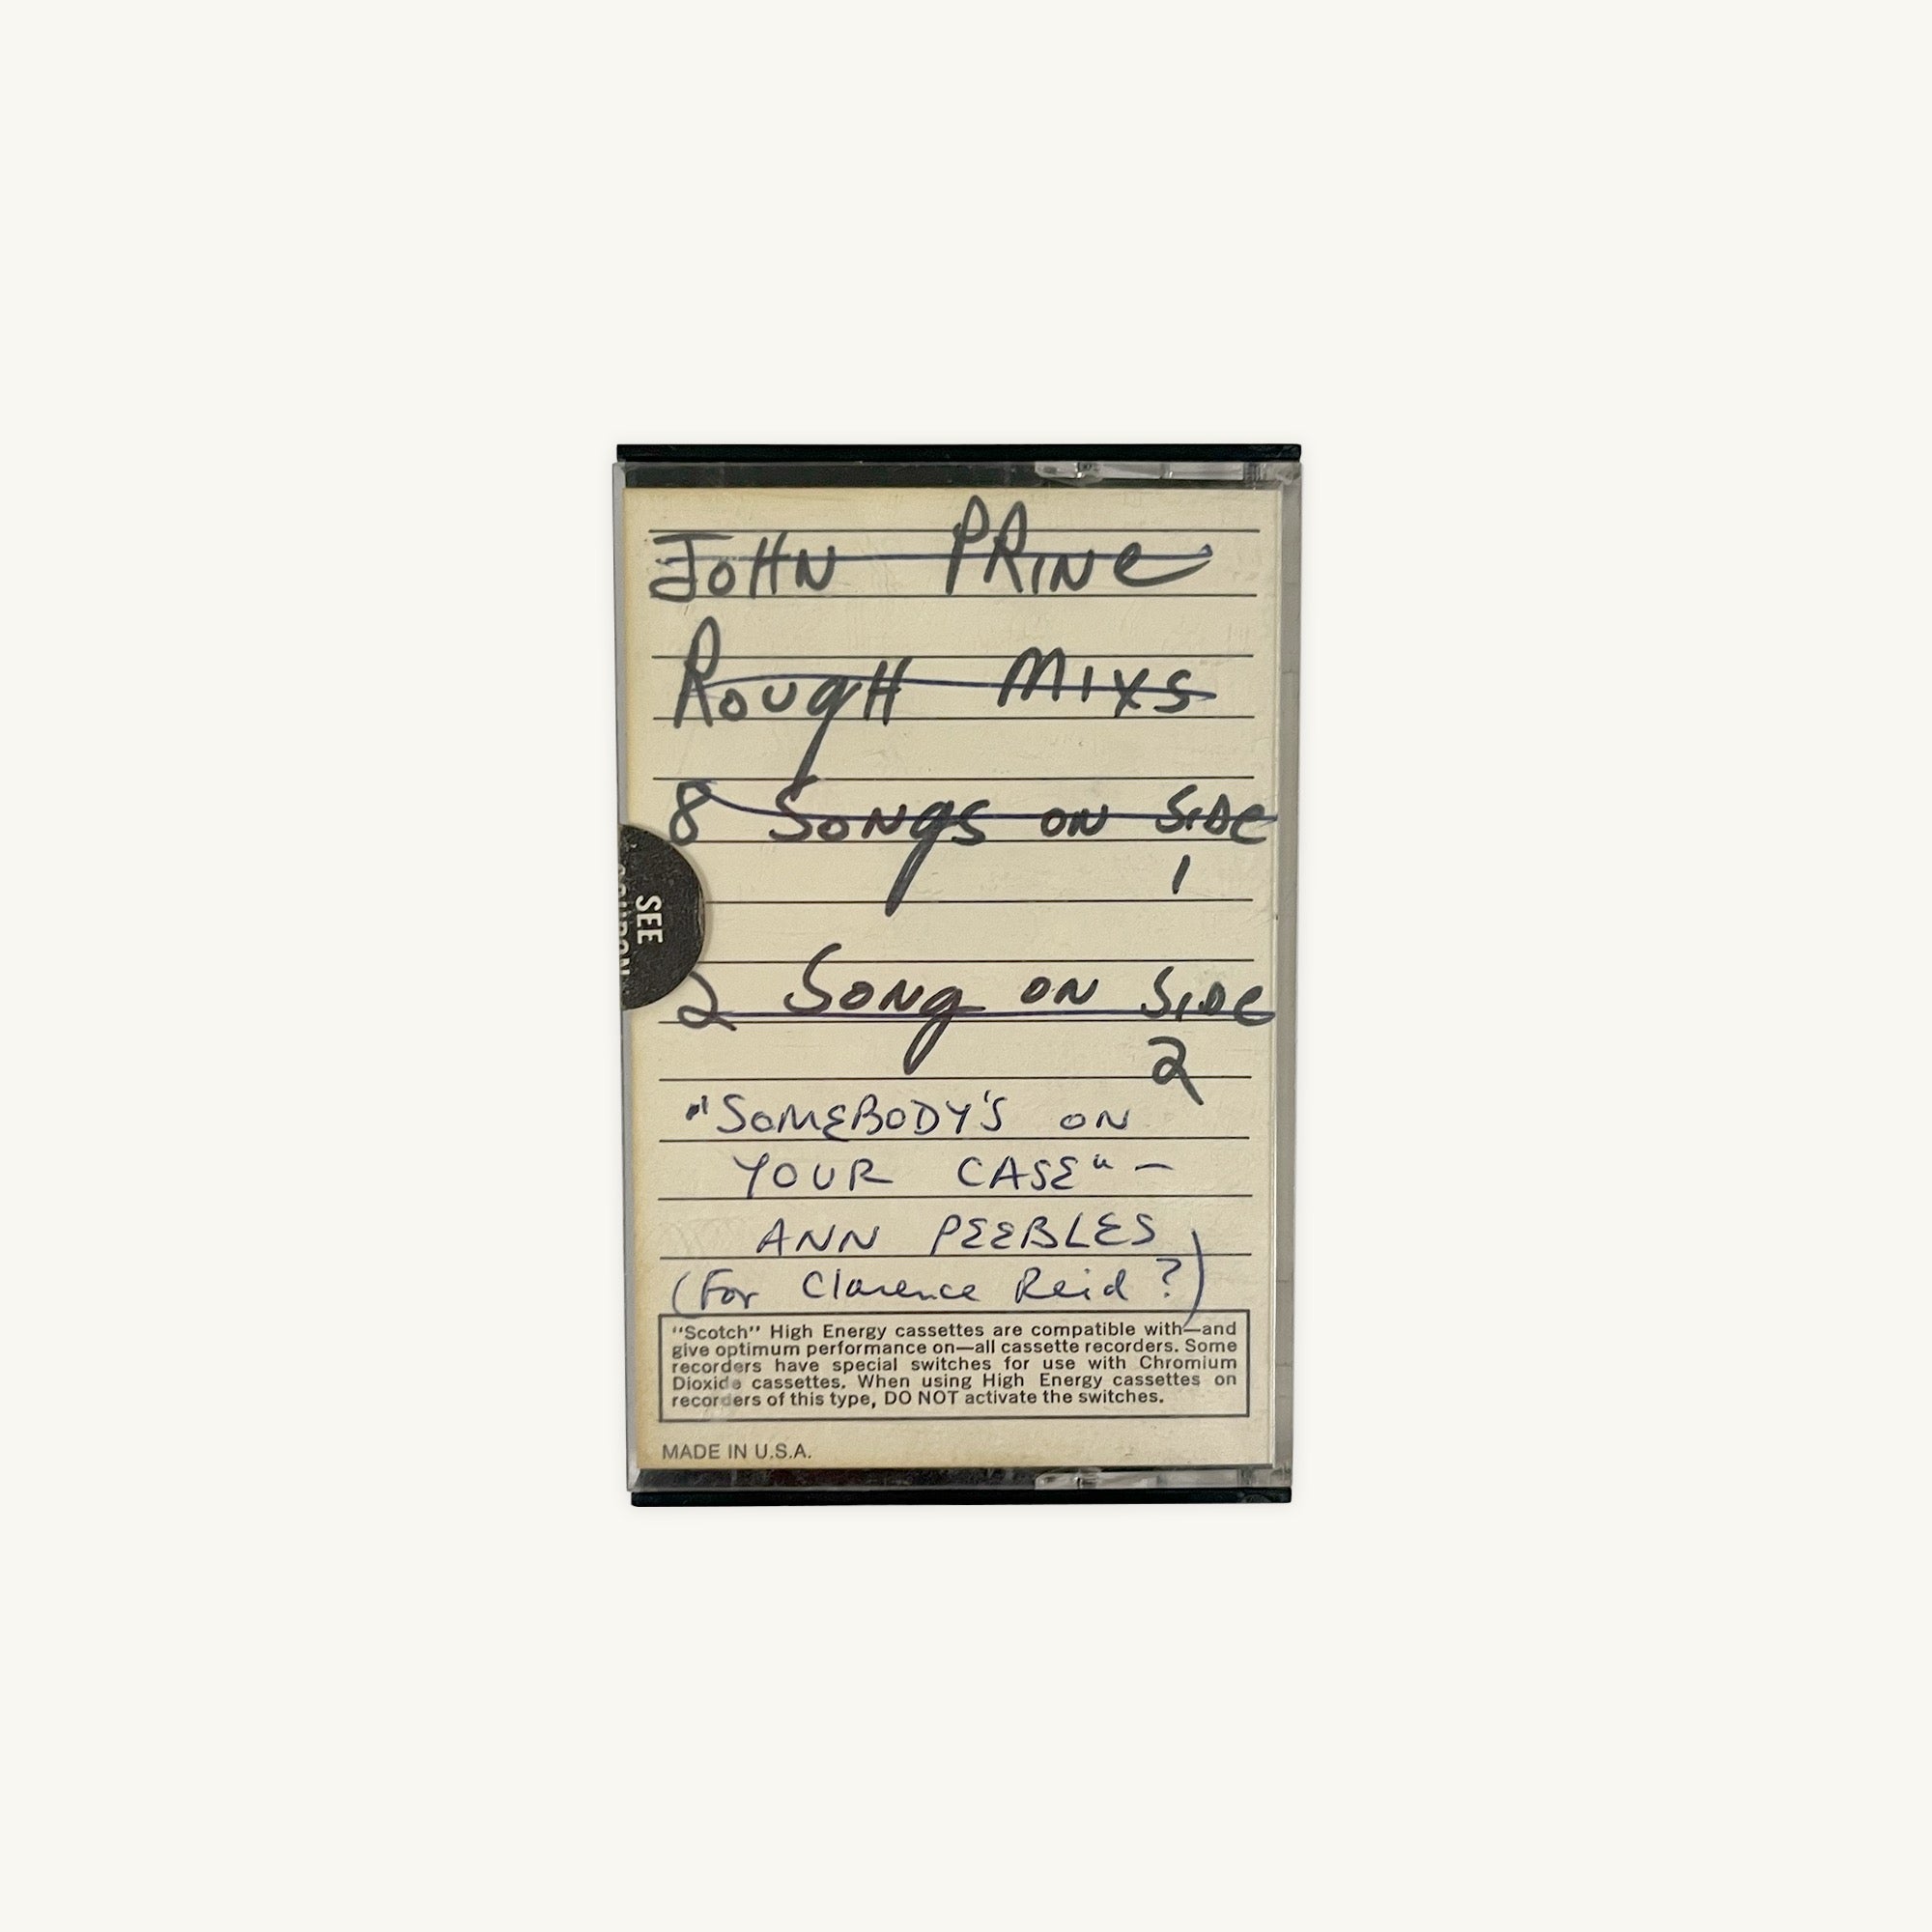 JOHN PRINE
ROUGH MIXS
8 SONGS ON SIDE
1
SEE
COUPON
2 SONG ON SIDE
2
"SOMEBODY'S ON
YOUR CASE" —
ANN PEEBLES
(For Clarence Reid ?)
"Scotch" High Energy cassettes are compatible with—and
give optimum performance on—all cassette recorders. Some
recorders have special switches for use with Chromium
Dioxide cassettes. When using High Energy cassettes on
recorders of this type, DO NOT activate the switches.
MADE IN U.S.A.